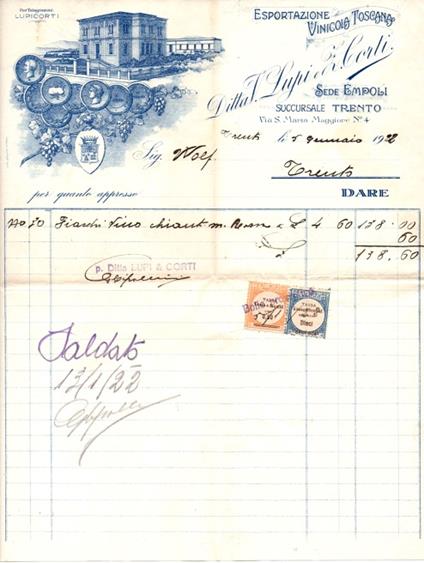 Per Telegrammi:
LUPICORTI
ESPORTAZIONE
VINICOLA TOSCANA
Ditta V. Lupi & F. Corti
SEDE EMPOLI
SUCCURSALE TRENTO
Via S. Maria Maggiore N° 4
Trento le 5 Gennaio 1922
Sig. Wolf
Trento
per quanto appresso
DARE
No 30 Fiaschi Vino chianti m. Rosso a £ 4 60 138.00
60
138.60
p. Ditta LUPI & CORTI
Bollo
TASSA
TASSA
Dieci
Saldato
13/1/22